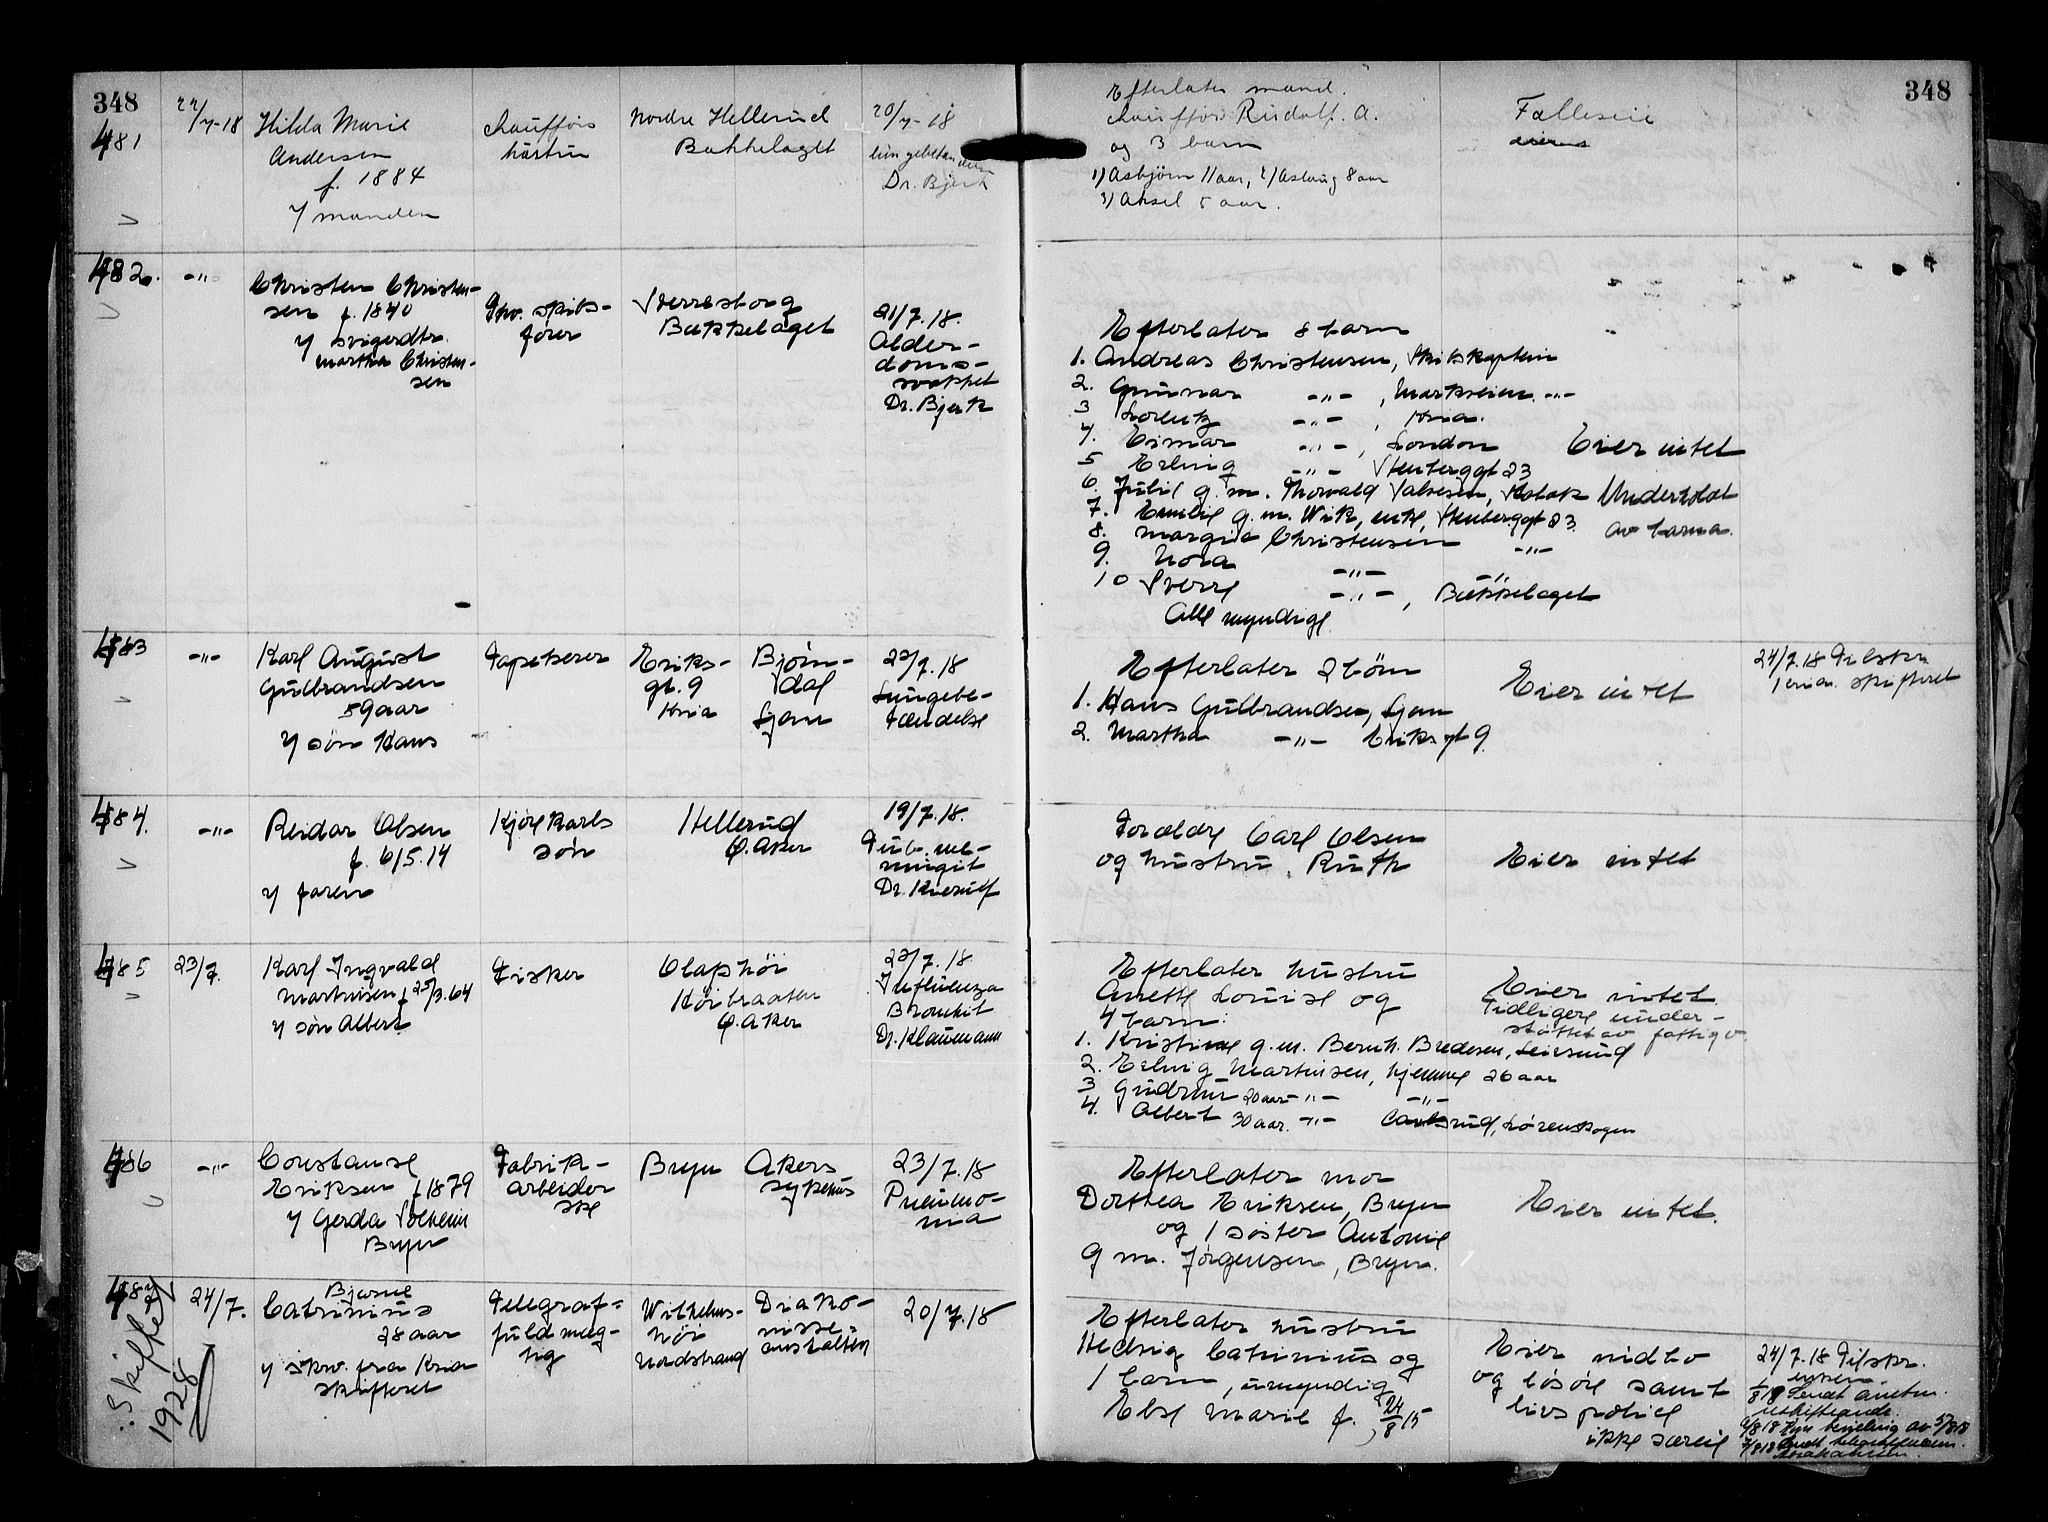 348
348
481
22/7-18
Hilda Marie
Andersen
f. 1884
v/ manden
chaufförs
hustru
Nordre Hellerud
Bækkelaget
20/7-18
Dr. Bjerk
Efterlater mand.
chauffør Rudolf. A.
og 3 barn
1) Asbjørn 11 aar, 2) Aslaug 8 aar
3) Aksel 5 aar.
Fælleseie
482.
-"-
Christen Christen-
sen f. 1840
v/ svigerdtr.
Martha Christen-
sen
Fhv. skibs-
fører
Sverresborg
Bækkelaget
21/7.18.
Alder-
doms-
svakhet
Dr. Bjerk
Efterlater 8 barn
1. Andreas Christensen, Skibskaptein
2. Gunnar -"- , Markveien -"-
3 Lorentz -"- , Kria.
4. Eimar -"- , London
5 Erling -"- Stenberggt 23
6. Julie g. m. Thorvald
7. Emilie g. m. Wik, enke, Stenberggt 23
8. Margit Christensen -"-
9. Nora -"- -"-
10 Sverre -"- , Bækkelaget
Alle myndige
Eier intet
Underholdt
av barna.
483
-"-
Karl August
Gulbrandsen
59 aar
v/ søn Hans
Tapetserer
Eriks-
gt. 9
Kria
Bjørn-
dal
Ljan
22/7.18
Lungebe-
tændelse
Efterlater 2 børn
1. Hans Gulbrandsen, Ljan
2. Martha -"- Eriksgt 9.
Eier intet
24/7.18 Tilskr.
Kria. skifteret
484.
-"-
Reidar Olsen
f. 6/5.14
v/ faren
Kjørekarls
søn
Hellerud
Ø. Aker
19/7.18.
Tub. me-
ningit
Dr. Kierulf
Forældre Carl Olsen
og hustru Ruth
Eier intet
485
23/7.
Karl Ingvald
Martinsen f. 25/3.64
v/ søn Albert
Fisker
Olafshöi
Höibraaten
Ø. Aker
22/7.18
Influenza
Bronkit
Dr. Klaumann
Efterlater hustru
Anette Louise og
4 barn:
1. Kristine g. m. Bernh. Bredesen, Leirsund
2. Erling Martinsen, hjemme 26 aar
3 Gudrun 20 aar -"- -"-
4. Albert 30 aar. -"- Carlsrud, Lørenskogen
Eier intet
Tidligere under-
støttet av fattigv.
486
-"-
Constanse
Eriksen f. 1879
v/ Gerda Solheim
Bryn
Fabrik-
arbeider
ske
Bryn
Akers
sykehus
23/7.18
Pneumo-
nia
Efterlater mor
Dorthea Eriksen, Bryn
og 1 søster Antonie
g m. Jørgensen, Bryn.
Eier intet.
487
Skiftet
1928
24/7.
Bjarne
Catrinius
28 aar
v/ skv. fra Kria
skifteret
Telegraf-
fuldmæg-
tig
Wilhelms-
höi
Nordstrand
Diako-
nisse
anstalten
20/7.18
Efterlater hustru
Hedvig Catrinius og
1 barn, umyndig
Else Marie f. 24/8 15
Eier indbo
og løsøre samt
livspolice
ikke særeie
24/7.18 Tilskr.
enken.